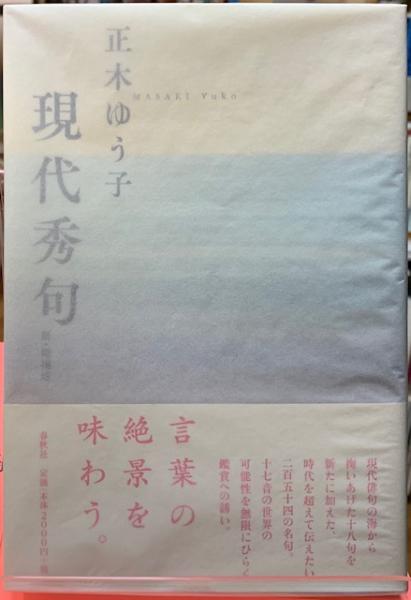 正木ゆう子
MASAKI Yuko
現代秀句
新・増補版
言葉の
絶景を
味わう。
現代俳句の海から
掬いあげた十八句を
新たに加えた、
時代を超えて伝えたい
二百五十四の名句。
十七音の世界の
可能性を無限にひらく
鑑賞への誘い。
春秋社 定価:本体2000円+税